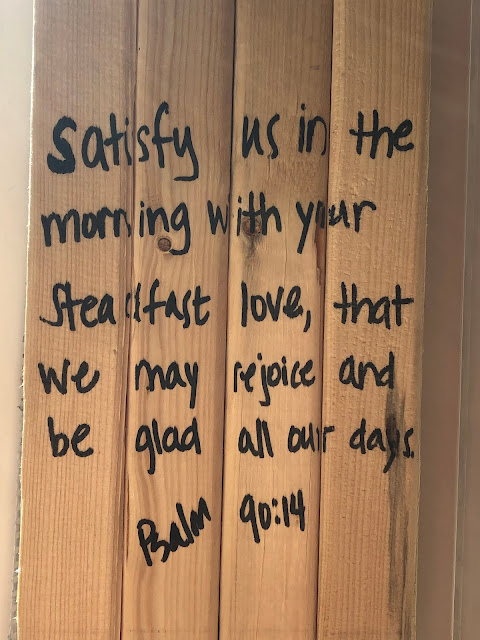 satisfy us in the
morning with your
steadfast love, that
we may rejoice and
be glad all our days.
Psalm 90:14